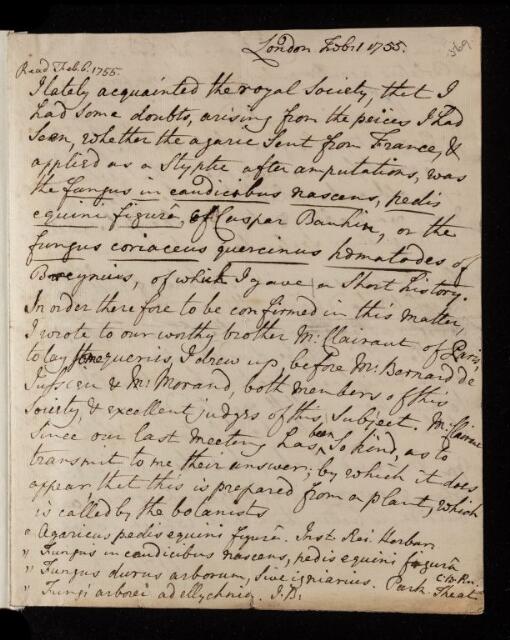 London Feb: 1 1755.
369
Read Feb. 6. 1755.
I lately acquainted the royal Society, that I
had some doubts, arising from the peices I had
seen, whether the agaric sent from France, &
applied as a Styptic after amputations, was
the fungus in caudicibus nascens, pedis
equini figurâ, of Caspar Bauhin, or the
fungus coriaceus quercinus hæmatodes of
Breynius, of which I gave a short history.
In order therefore to be confirmed in this matter,
I wrote to our worthy brother Mr. Clairaut of Paris,
to lay some queries, I drew up, before Mr. Bernard de
Jussieu & Mr. Morand, both members of this
Society, & excellent judges of this subject. Mr. Clairaut
since our last meeting has been so kind, as to
transmit to me their answer; by which it does
appear, that this is prepared from a plant, which
is called by the botanists
" Agaricus pedis equini figurâ. Inst. Rei. Herbar.
" Fungus in caudicibus nascens, pedis equini figurâ
C. B. Pin.
" Fungus durus arborum, sive igniarius. Park. Theat
" Fungi arborei ad ellychnia. J. B.